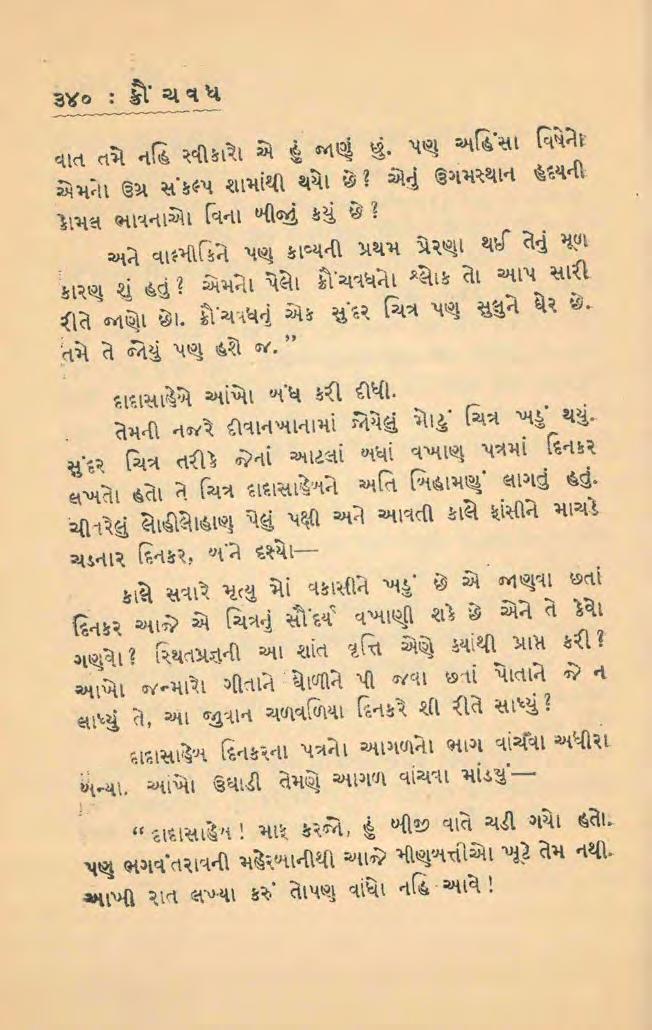 ૩૪૦ : ક્રૌંચવધ
વાત તમે નહિ સ્વીકારો એ હું જાણું છું. પણ અહિંસા વિષેનો
એમનો ઉગ્ર સંકલ્પ શામાંથી થયો છે? એનું ઉગમસ્થાન હૃદયની
કોમલ ભાવનાઓ વિના બીજું કયું છે?
અને વાલ્મીકિને પણ કાવ્યની પ્રથમ પ્રેરણા થઈ તેનું મૂળ
કારણ શું હતું? એમનો પેલો ક્રૌંચવધનો શ્લોક તો આપ સારી
રીતે જાણો છો. ક્રૌંચવધનું એક સુંદર ચિત્ર પણ સુલુને ઘેર છે.
તમે તે જોયું પણ હશે જ.”
દાદાસાહેબે આંખો બંધ કરી દીધી.
તેમની નજરે દીવાનખાનામાં જોયેલું મોટું ચિત્ર ખડું થયું.
સુંદર ચિત્ર તરીકે જેનાં આટલાં બધાં વખાણ પત્રમાં દિનકર
લખતો હતો તે ચિત્ર દાદાસાહેબને અતિ બિહામણું લાગતું હતું.
ચીતરેલું લોહીલોહાણ પેલું પક્ષી અને આવતી કાલે ફાંસીને માચડે
ચડનાર દિનકર, બંને દૃશ્યો—
કાલે સવારે મૃત્યુ મોં વકાસીને ખડું છે એ જાણવા છતાં
દિનકર આજે એ ચિત્રનું સૌંદર્ય વખાણી શકે છે એને તે કેવો
ગણવો? સ્થિતપ્રજ્ઞની આ શાંત વૃત્તિ એણે ક્યાંથી પ્રાપ્ત કરી?
આખો જન્મારો ગીતાને ઘોળીને પી જવા છતાં પોતાને જે ન
લાધ્યું તે, આ જુવાન ચળવળિયા દિનકરે શી રીતે સાધ્યું?
દાદાસાહેબ દિનકરના પત્રનો આગળનો ભાગ વાંચવા અધીરા
બન્યા. આંખો ઉઘાડી તેમણે આગળ વાંચવા માંડયું—
“દાદાસાહેબ! માફ કરજો, હું બીજી વાતે ચડી ગયો હતો.
પણ ભગવંતરાવની મહેરબાનીથી આજે મીણબત્તીઓ ખૂટે તેમ નથી.
આખી રાત લખ્યા કરું તોપણ વાંધો નહિ આવે!